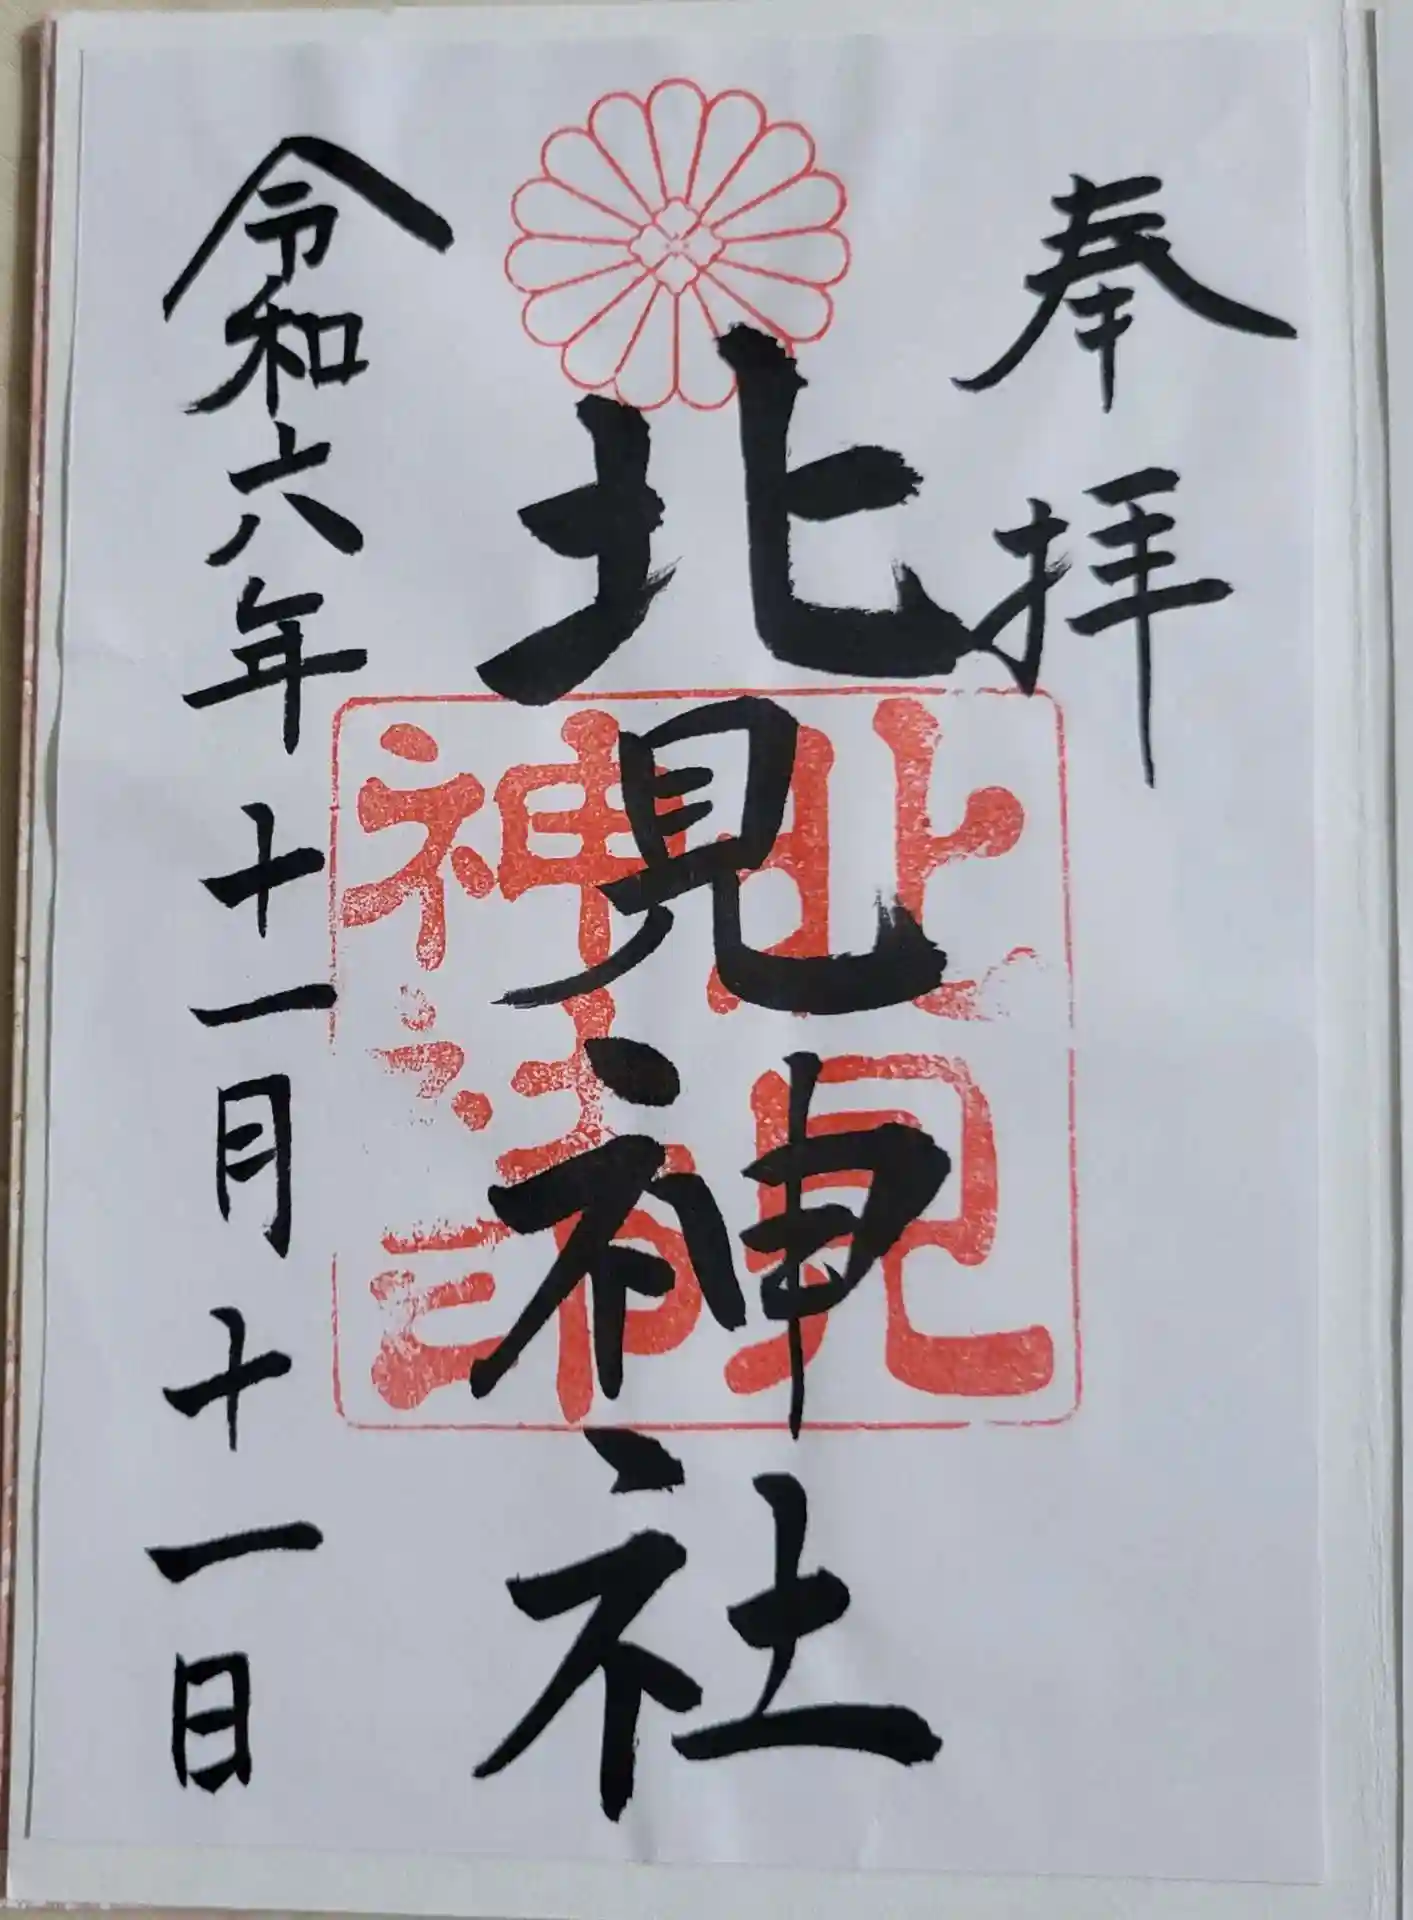 奉拝
北見神社
北見
神社
令和六年十一月十一日